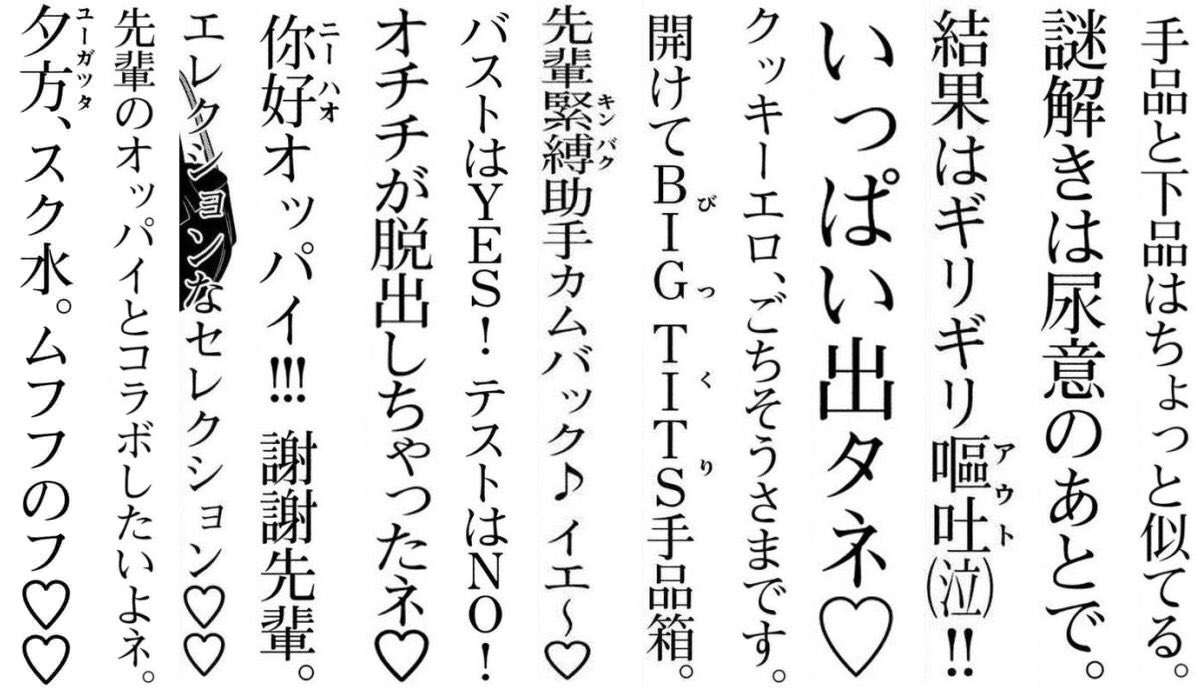 手品と下品はちょっと似てる。
謎解きは尿意のあとで。
結果はギリギリ嘔吐(泣)!!
アウト
いっぱい出タネ♡
クッキーエロ、ごちそうさまです。
開けてBIG TITS手品箱。
びつくり
先輩緊縛助手カムバック♪イエ〜♡
キンバク
バストはYES！テストはNO！
オチチが脱出しちゃったネ♡
你好オッパイ!!! 謝謝先輩。
ニーハオ
エレクションなセレクション♡♡
先輩のオッパイとコラボしたいよネ。
夕方、スク水。ムフフのフ♡♡
ユーガッタ